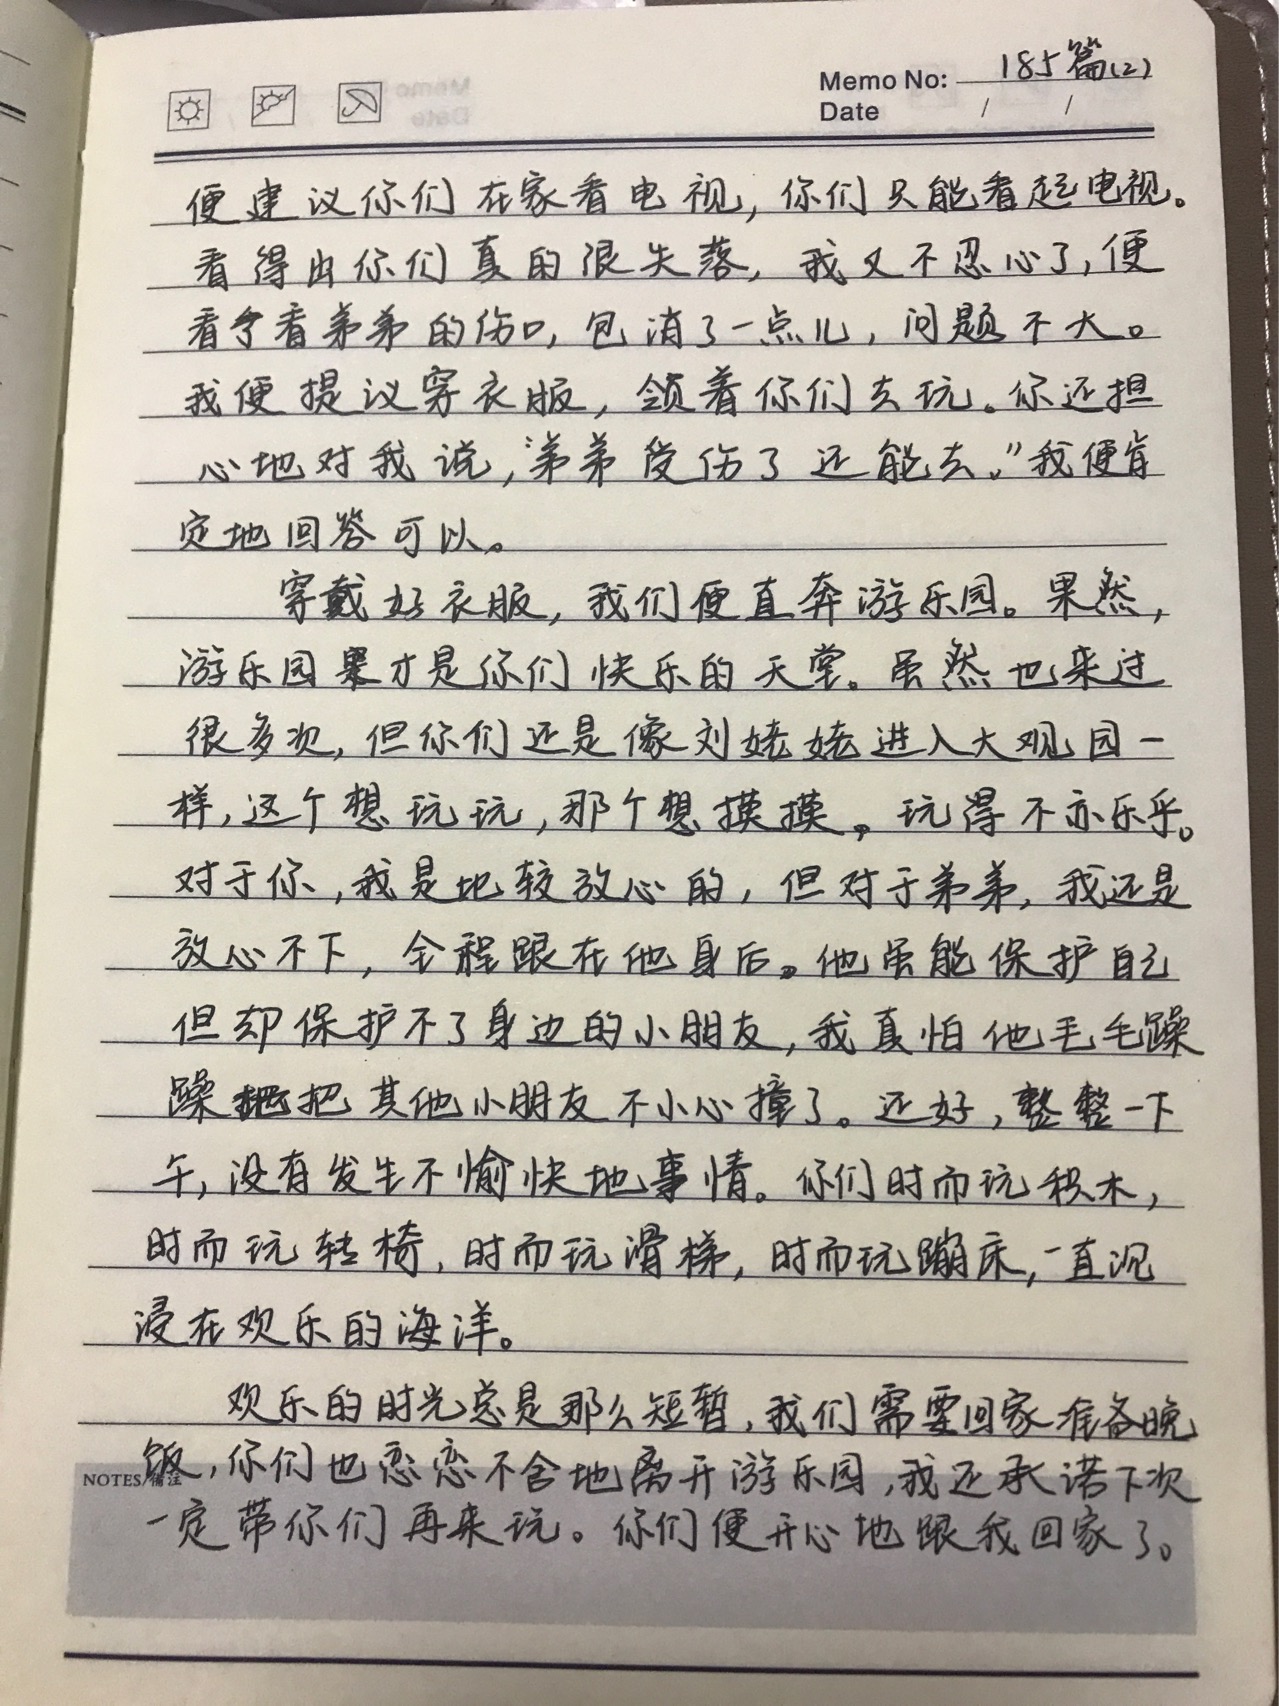 Memo No: 185篇(2)
Date / /
便建议你们在家看电视,你们只能看起电视。
看得出你们真的很失落,我又不忍心了,便
看了看弟弟的伤口,包消了一点儿,问题不大。
我便提议穿衣服,领着你们去玩。你还担
心地对我说,“弟弟受伤了还能去。”我便肯
定地回答可以。
穿戴好衣服,我们便直奔游乐园。果然,
游乐园才是你们快乐的天堂。虽然也来过
很多次,但你们还是像刘姥姥进入大观园一
样,这个想玩玩,那个想摸摸。玩得不亦乐乎。
对于你,我是比较放心的,但对于弟弟,我还是
放心不下,全程跟在他身后。他虽能保护自己
但却保护不了身边的小朋友,我真怕他毛毛躁
躁把其他小朋友不小心撞了。还好,整整一下
午,没有发生不愉快地事情。你们时而玩积木,
时而玩转椅,时而玩滑梯,时而玩蹦床,一直沉
浸在欢乐的海洋。
欢乐的时光总是那么短暂,我们需要回家准备晚
饭,你们也恋恋不舍地离开游乐园,我还承诺下次
NOTES/备注
一定带你们再来玩。你们便开心地跟我回家了。